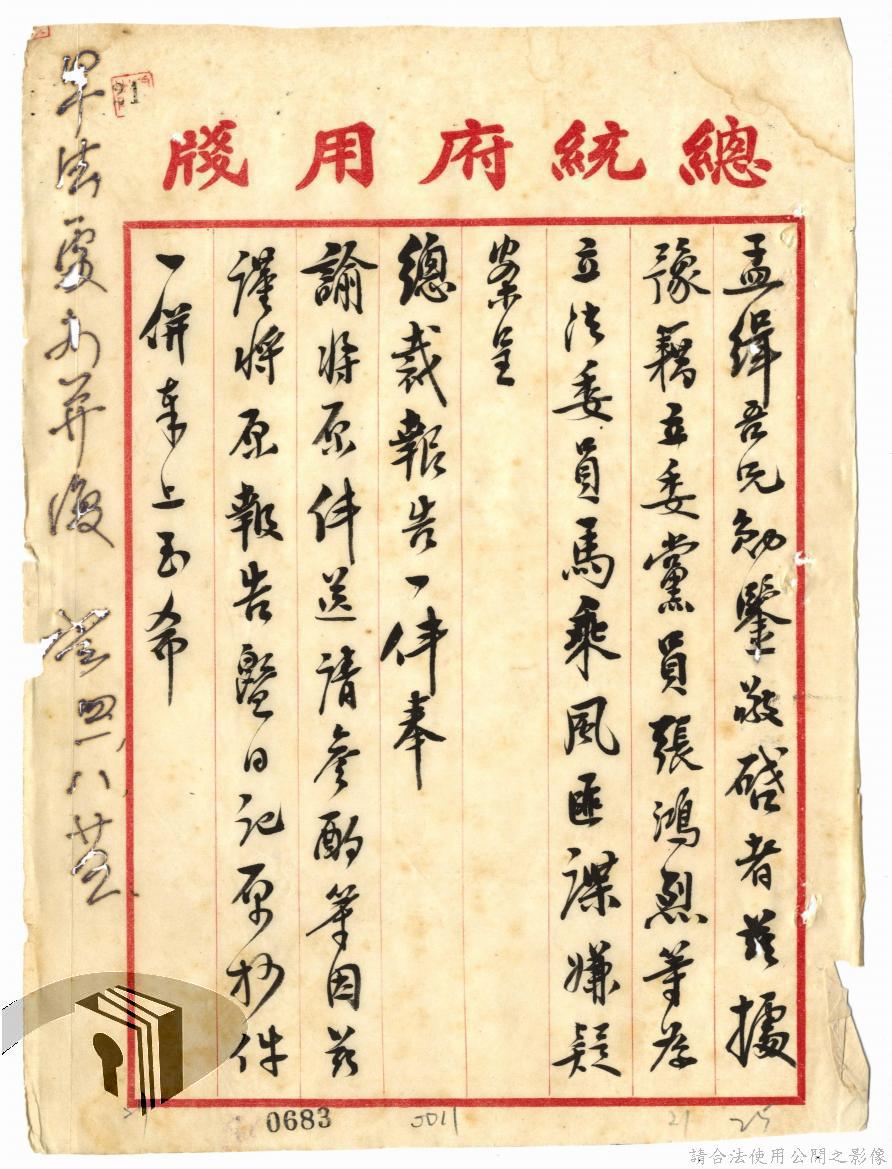 總統府用牋
孟緝吾兄勛鑒敬啓者茲據
豫籍立委黨員張鴻烈等為
立法委員馬乘風匪諜嫌疑
案呈
總裁報告一件奉
諭將原件送請參酌等因茲
謹將原報告暨日記原抄件
一併奉上至希
軍法處
并復
四一、八、廿五
21
0683
0011
21
25
請合法使用公開之影像